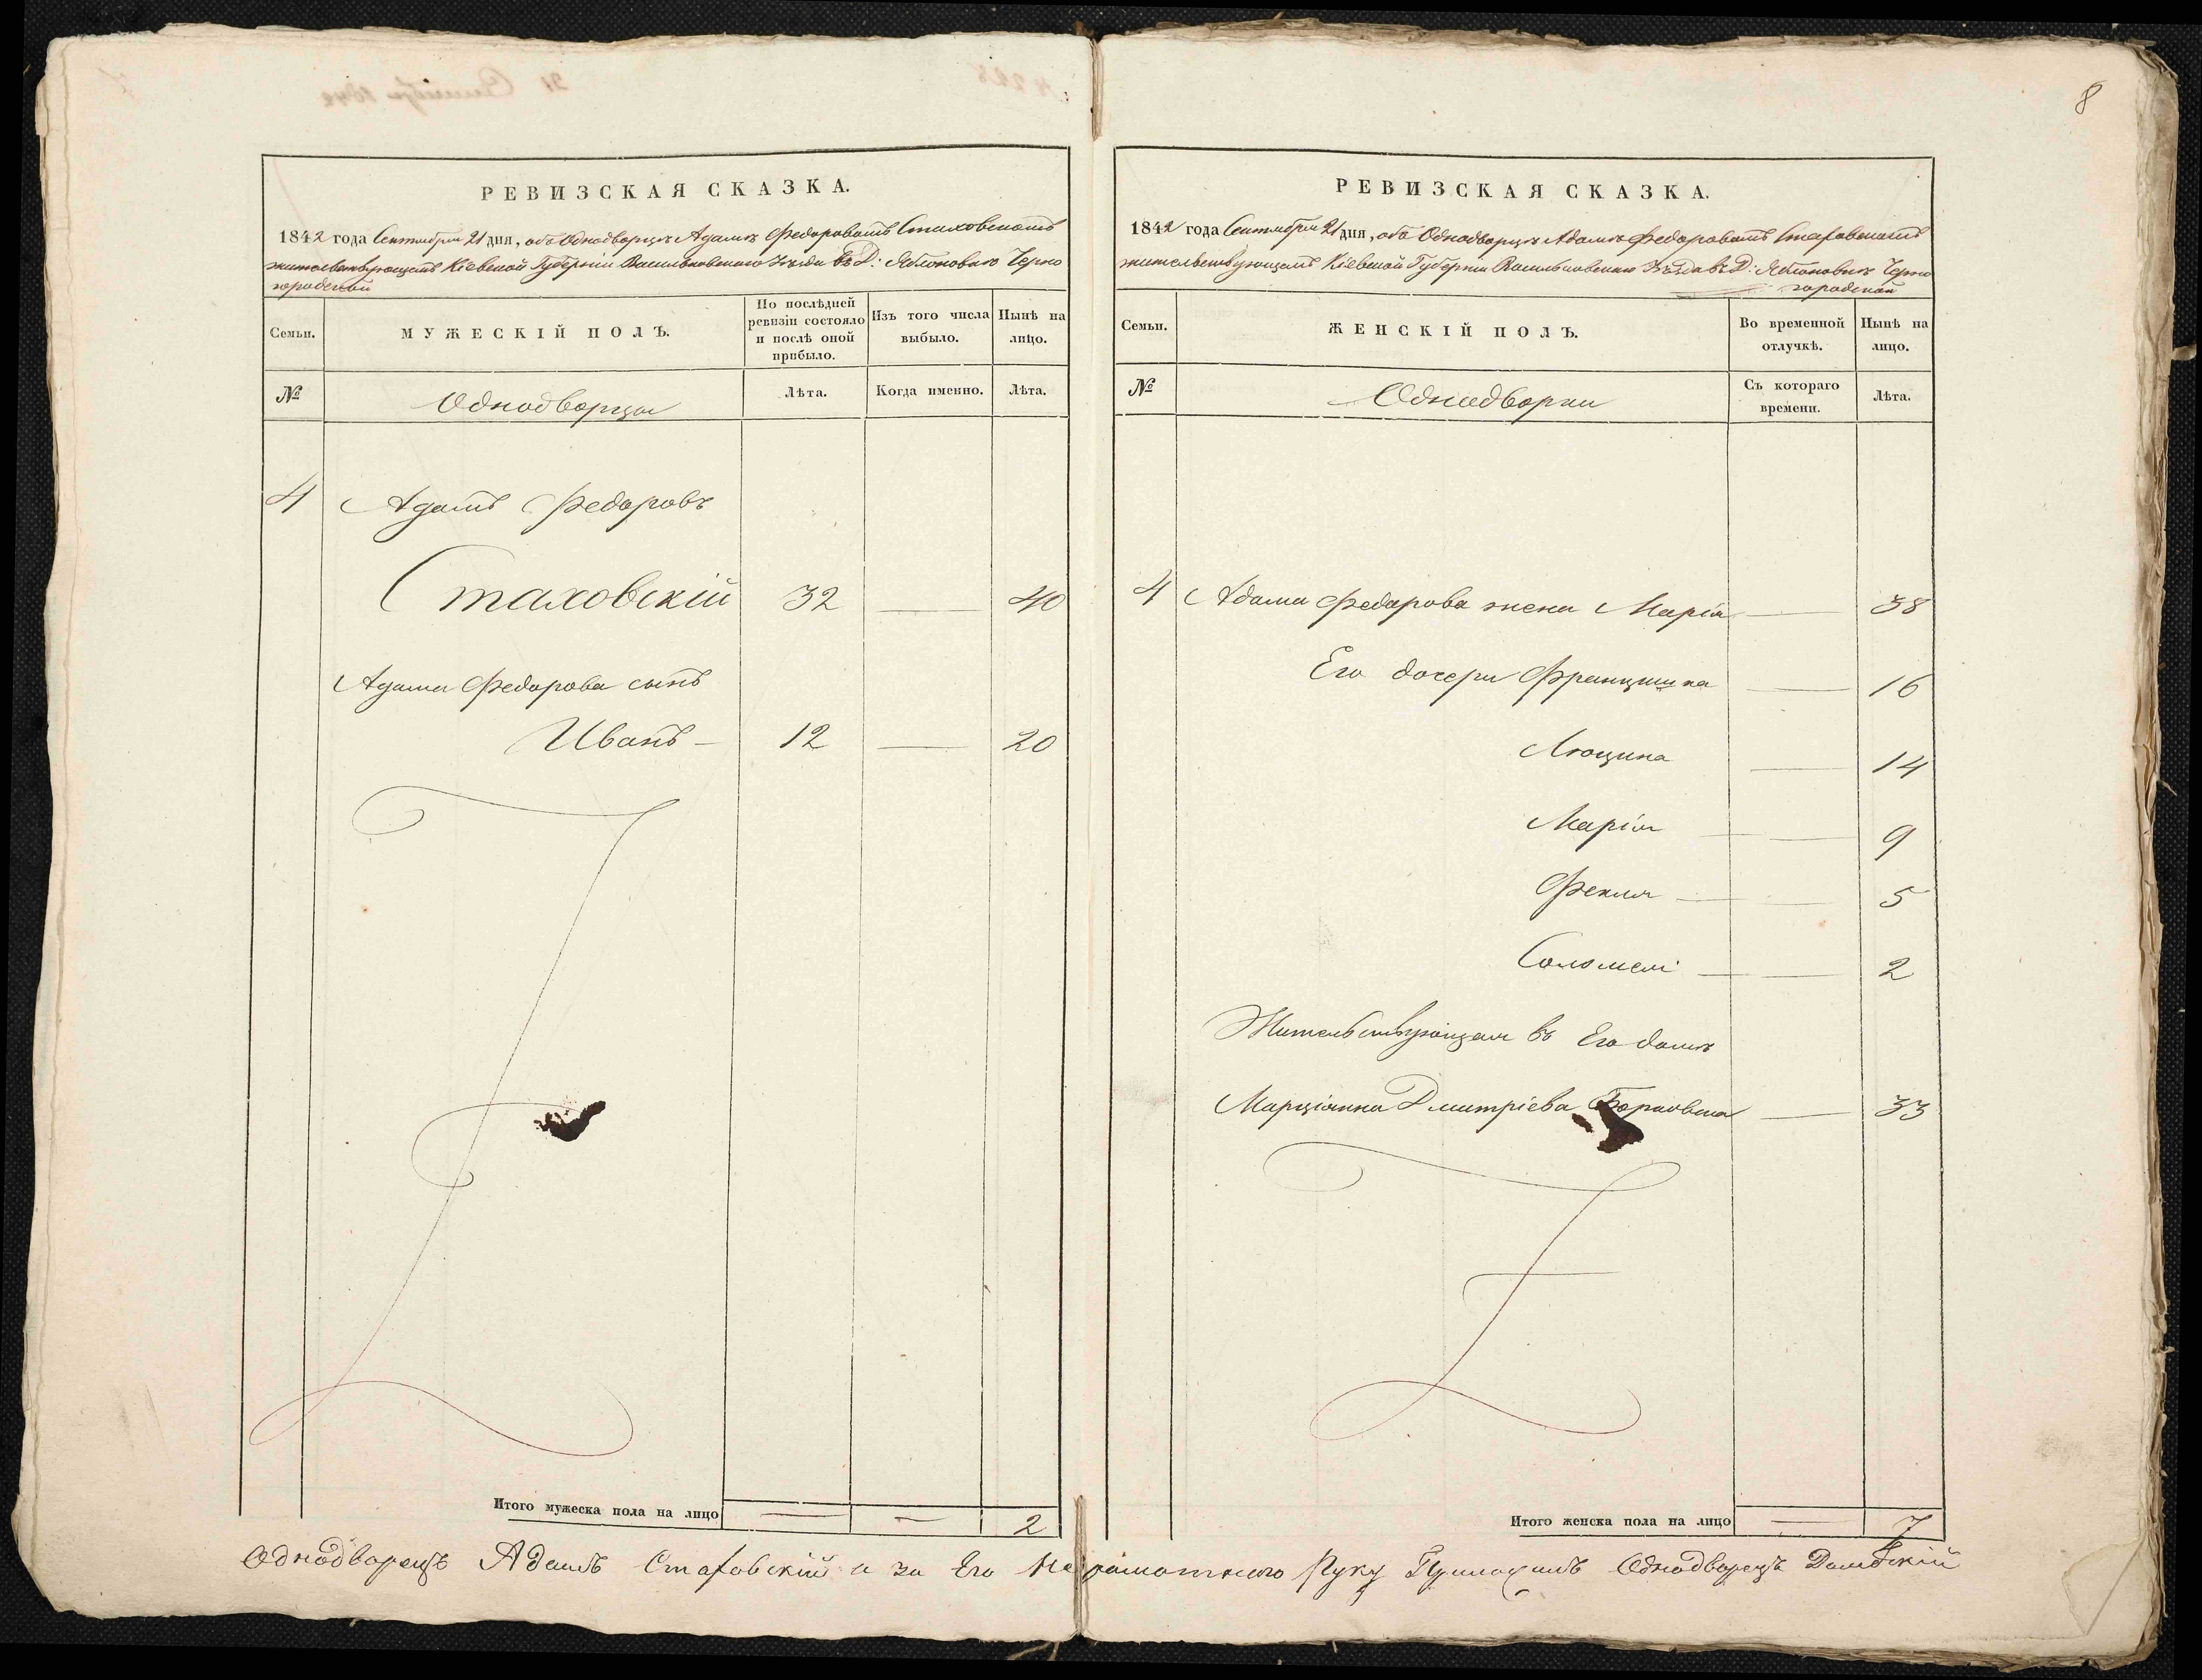 8
РЕВИЗСКАЯ СКАЗКА.
1842 года Сентября 21 дня, объ Однодворцѣ Адамѣ Федоровомъ Стаховскомъ
жительствующемъ Кіевской Губерніи Васильковскаго Уѣзда въ Д: Яблоновкѣ Черно
городской
Семьи. МУЖЕСКІЙ ПОЛЪ. По послѣдней ревизіи состояло и послѣ оной прибыло. Изъ того числа выбыло. Нынѣ на лицо.
№ Однодворцы Лѣта. Когда именно. Лѣта.
4 Адамъ Федоровъ
Стаховскій 32 — 40
Адама Федорова сынъ
Иванъ — 12 — 20
Итого мужеска пола на лицо — — 2
РЕВИЗСКАЯ СКАЗКА.
1842 года Сентября 21 дня, объ Однодворцѣ Адамѣ Федоровомъ Стаховскомъ
жительствующемъ Кіевской Губерніи Васильковскаго Уѣзда въ Д: Яблоновкѣ Черно
городской
Семьи. ЖЕНСКІЙ ПОЛЪ. Во временной отлучкѣ. Нынѣ на лицо.
№ Однодворки Съ котораго времени. Лѣта.
4 Адама Федорова жена Марія — 38
Его дочери Францишка — 16
Люцина — 14
Марія — 9
Фекля — 5
Соломеі — 2
Жительствующая въ Его домѣ
Марціянна Дмитріева Борковска — 33
Итого женска пола на лицо — 7
Однодворецъ Адамъ Стаховскій а за Его Неграмотного Руку Приложилъ Однодворецъ